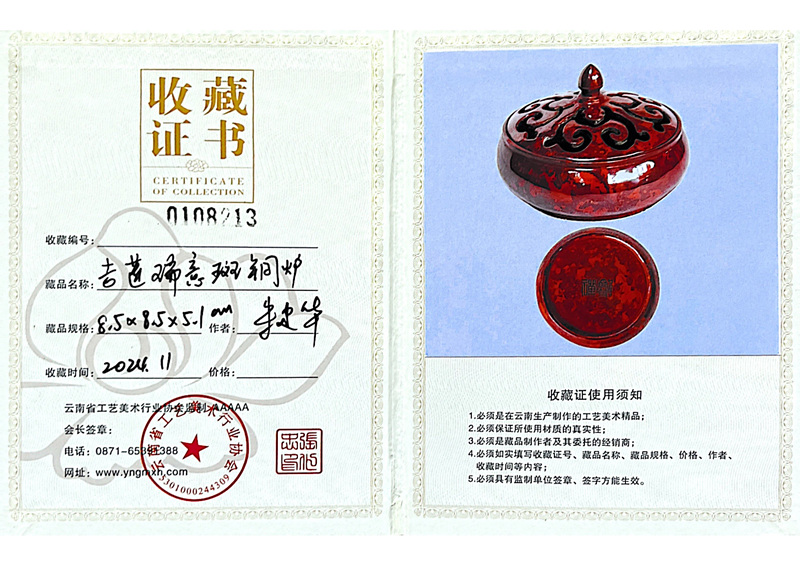 收藏
证书
CERTIFICATE
OF COLLECTION
0108213
收藏编号：
藏品名称：吉莲瑞意斑铜炉
藏品规格：8.5×8.5×5.1cm 作者：
收藏时间：2024.11 价格：
云南省工艺美术行业协会监制 AAAAA
会长签章：
电话：0871-65391388
网址：www.yngmxh.com
云南省工艺美术行业协会
5301000244309
收藏证使用须知
1.必须是在云南生产制作的工艺美术精品；
2.必须保证所使用材质的真实性；
3.必须是藏品制作者及其委托的经销商；
4.必须如实填写收藏证号、藏品名称、藏品规格、价格、作者、
收藏时间等内容；
5.必须具有监制单位签章、签字方能生效。